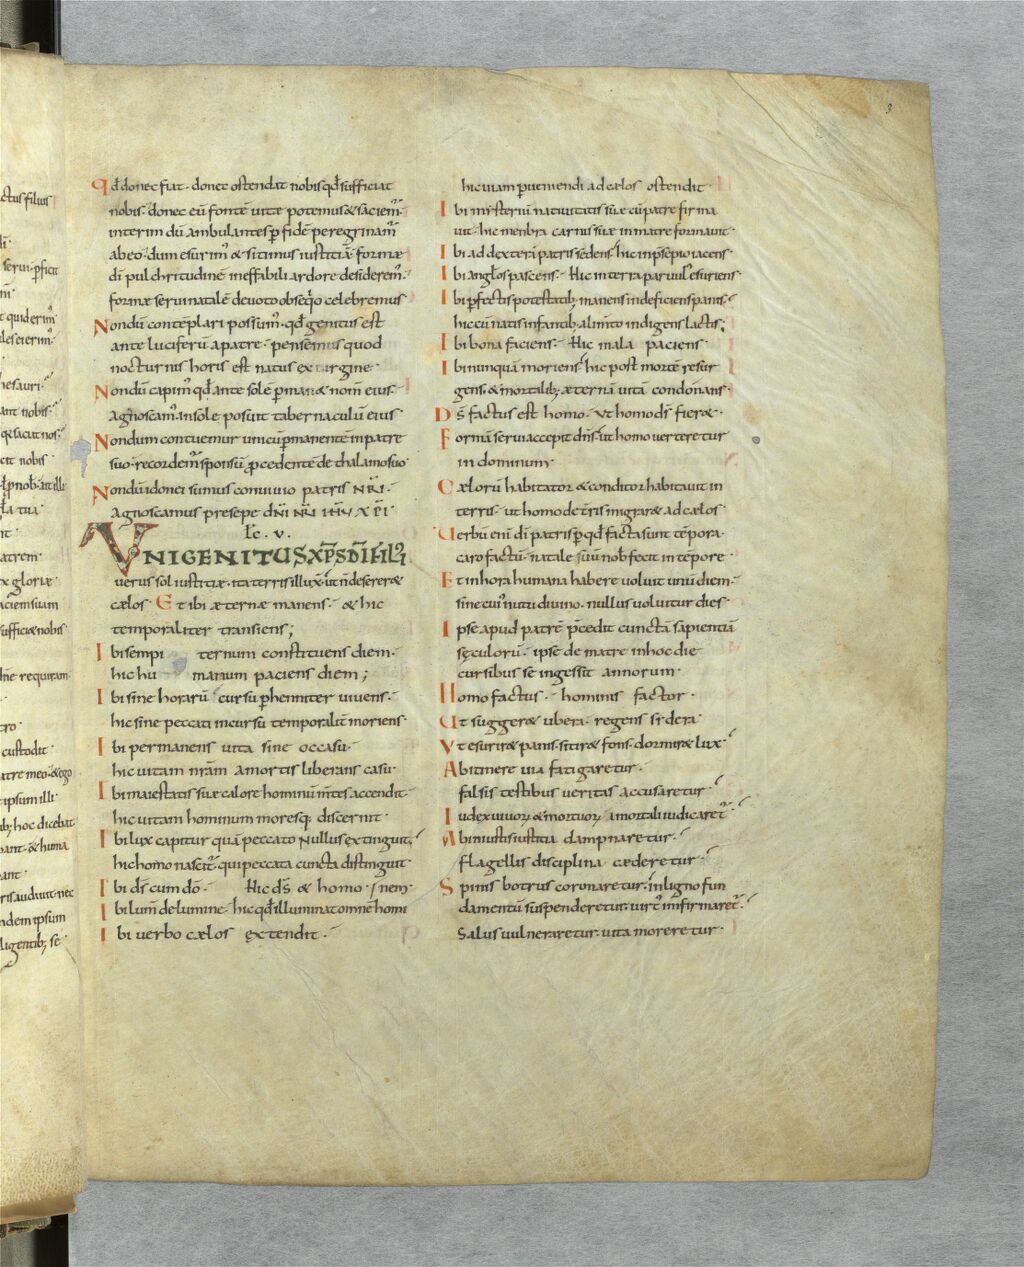 3
qđ donec fiat · donec ostendat nobis qđ sufficiat
nobis · donec eū fontē vitæ potemus & saciem̄ ·
interim dū ambulantes p̱ fidē peregrinam̄
abeo · dum esurim̄ & sitimus iustitiæ · formæ
dī pulchritudinē ineffabili ardore desiderem̄ ·
formæ servi natalē devoto obseqio celebremus
Nondū contēplari possum̄ · qđ genitus est
ante luciferū a patre · pensemus quod
nocturnis horis est natus ex virgine ·
Nondū capim̄ qđ ante solē p̱man& nom̄ eius ·
agnoscam̄ · in sole posuit tabernaculū eius
Nondum contuemur unicū p̱manentē in patre
suo · recordem̄ sponsū p̱cedentē de thalamo suo
Nondū idonei sumus convivio patris NR̄I ·
Agnoscamus presepe dn̄i NR̄I IHV XPI
Lc · v ·
VNIGENITUS XPS DĪ FILI
verus sol iustitiæ · ita terris illux̄ · ut n̄ deserer&
cælos Et ibi æternæ manens · & hic
temporaliter transiens ;
Ibi sempi ternum constituens diem ·
hic hu manum paciens diem ;
Ibi sine horarū cursu p̱henniter vivens ·
hic sine peccati incursu temporalit̄ moriens ·
Ibi permanens vita sine occasu ·
hic vitam nr̄am a mortis liberans casu ·
Ibi maiestatis suæ calore hominū m̄tes accendit ·
hic vitam hominum moresq; discernit ·
Ibi lux capitur quā peccato nullus extinguit ·
hic homo nascit̄ · qui peccata cuncta distinguit ·
Ibi dš cum dō · Hic dš & homo ·
Ibi lum̄ de lumine · hic qđ illuminat omnē homī
Ibi verbo cælos extendit ·
hic viam p̱veniendi ad cælos ostendit
Ibi mysteriū nativitatis suæ cū patre firma
vit · hic menbra carnis suæ in matre formavit ·
Ibi ad dexterā patris sedens · hic in p̱sepio iacens
Ibi anglōs pascens · Hic in terra parvulus esuriens ·
Ibi p̱fectis potestatib; manens indeficiens panis ·
hic cū natis infantib; alim̄to indigens lactis ;
Ibi bona faciens · Hic mala paciens ·
Ibi nunquā moriens · hic post mortē resur
gens · & mortalib; æternā vitā condonans ·
Dš factus est homo · Vt homo dš fier& ·
Formā servi accepit dn̄s · ut homo verteretur
in dominum ·
Cælorū habitator & conditor habitavit in
terris · ut homo de t̄ris migrar& ad cælos ·
Verbū enī dī patris p̱ qđ facta sunt tēpora ·
caro factū · natale suū nob̄ fecit in tēpore ·
Et in hora humana habere voluit unū diem ·
sine cui' nutu divino · nullus volvitur dies
Ipse apud patrē p̄cedit cunctā sapientiā
sęculorū · ipse de matre in hoc die
cursibus se ingessit annorum ·
Homo factus · hominis factor ·
Ut sugger& ubera · regens sidera ·
Vt esurir& panis · sitir& fons · dormir& lux ·
Ab itinere via fatigaretur ·
falsis testibus veritas accusaretur ·
Iudex vivor̄ & mortuor̄ a mortali iudicaret̄ ·
Ab iniustis iustitia dampnaretur ·
flagellis disciplina cæderetur ·
Spinis botrus coronaretur · in ligno fun
damentū suspenderetur · virt̄ infirmaret̄ ·
Salus vulneraretur · vita moreretur ·